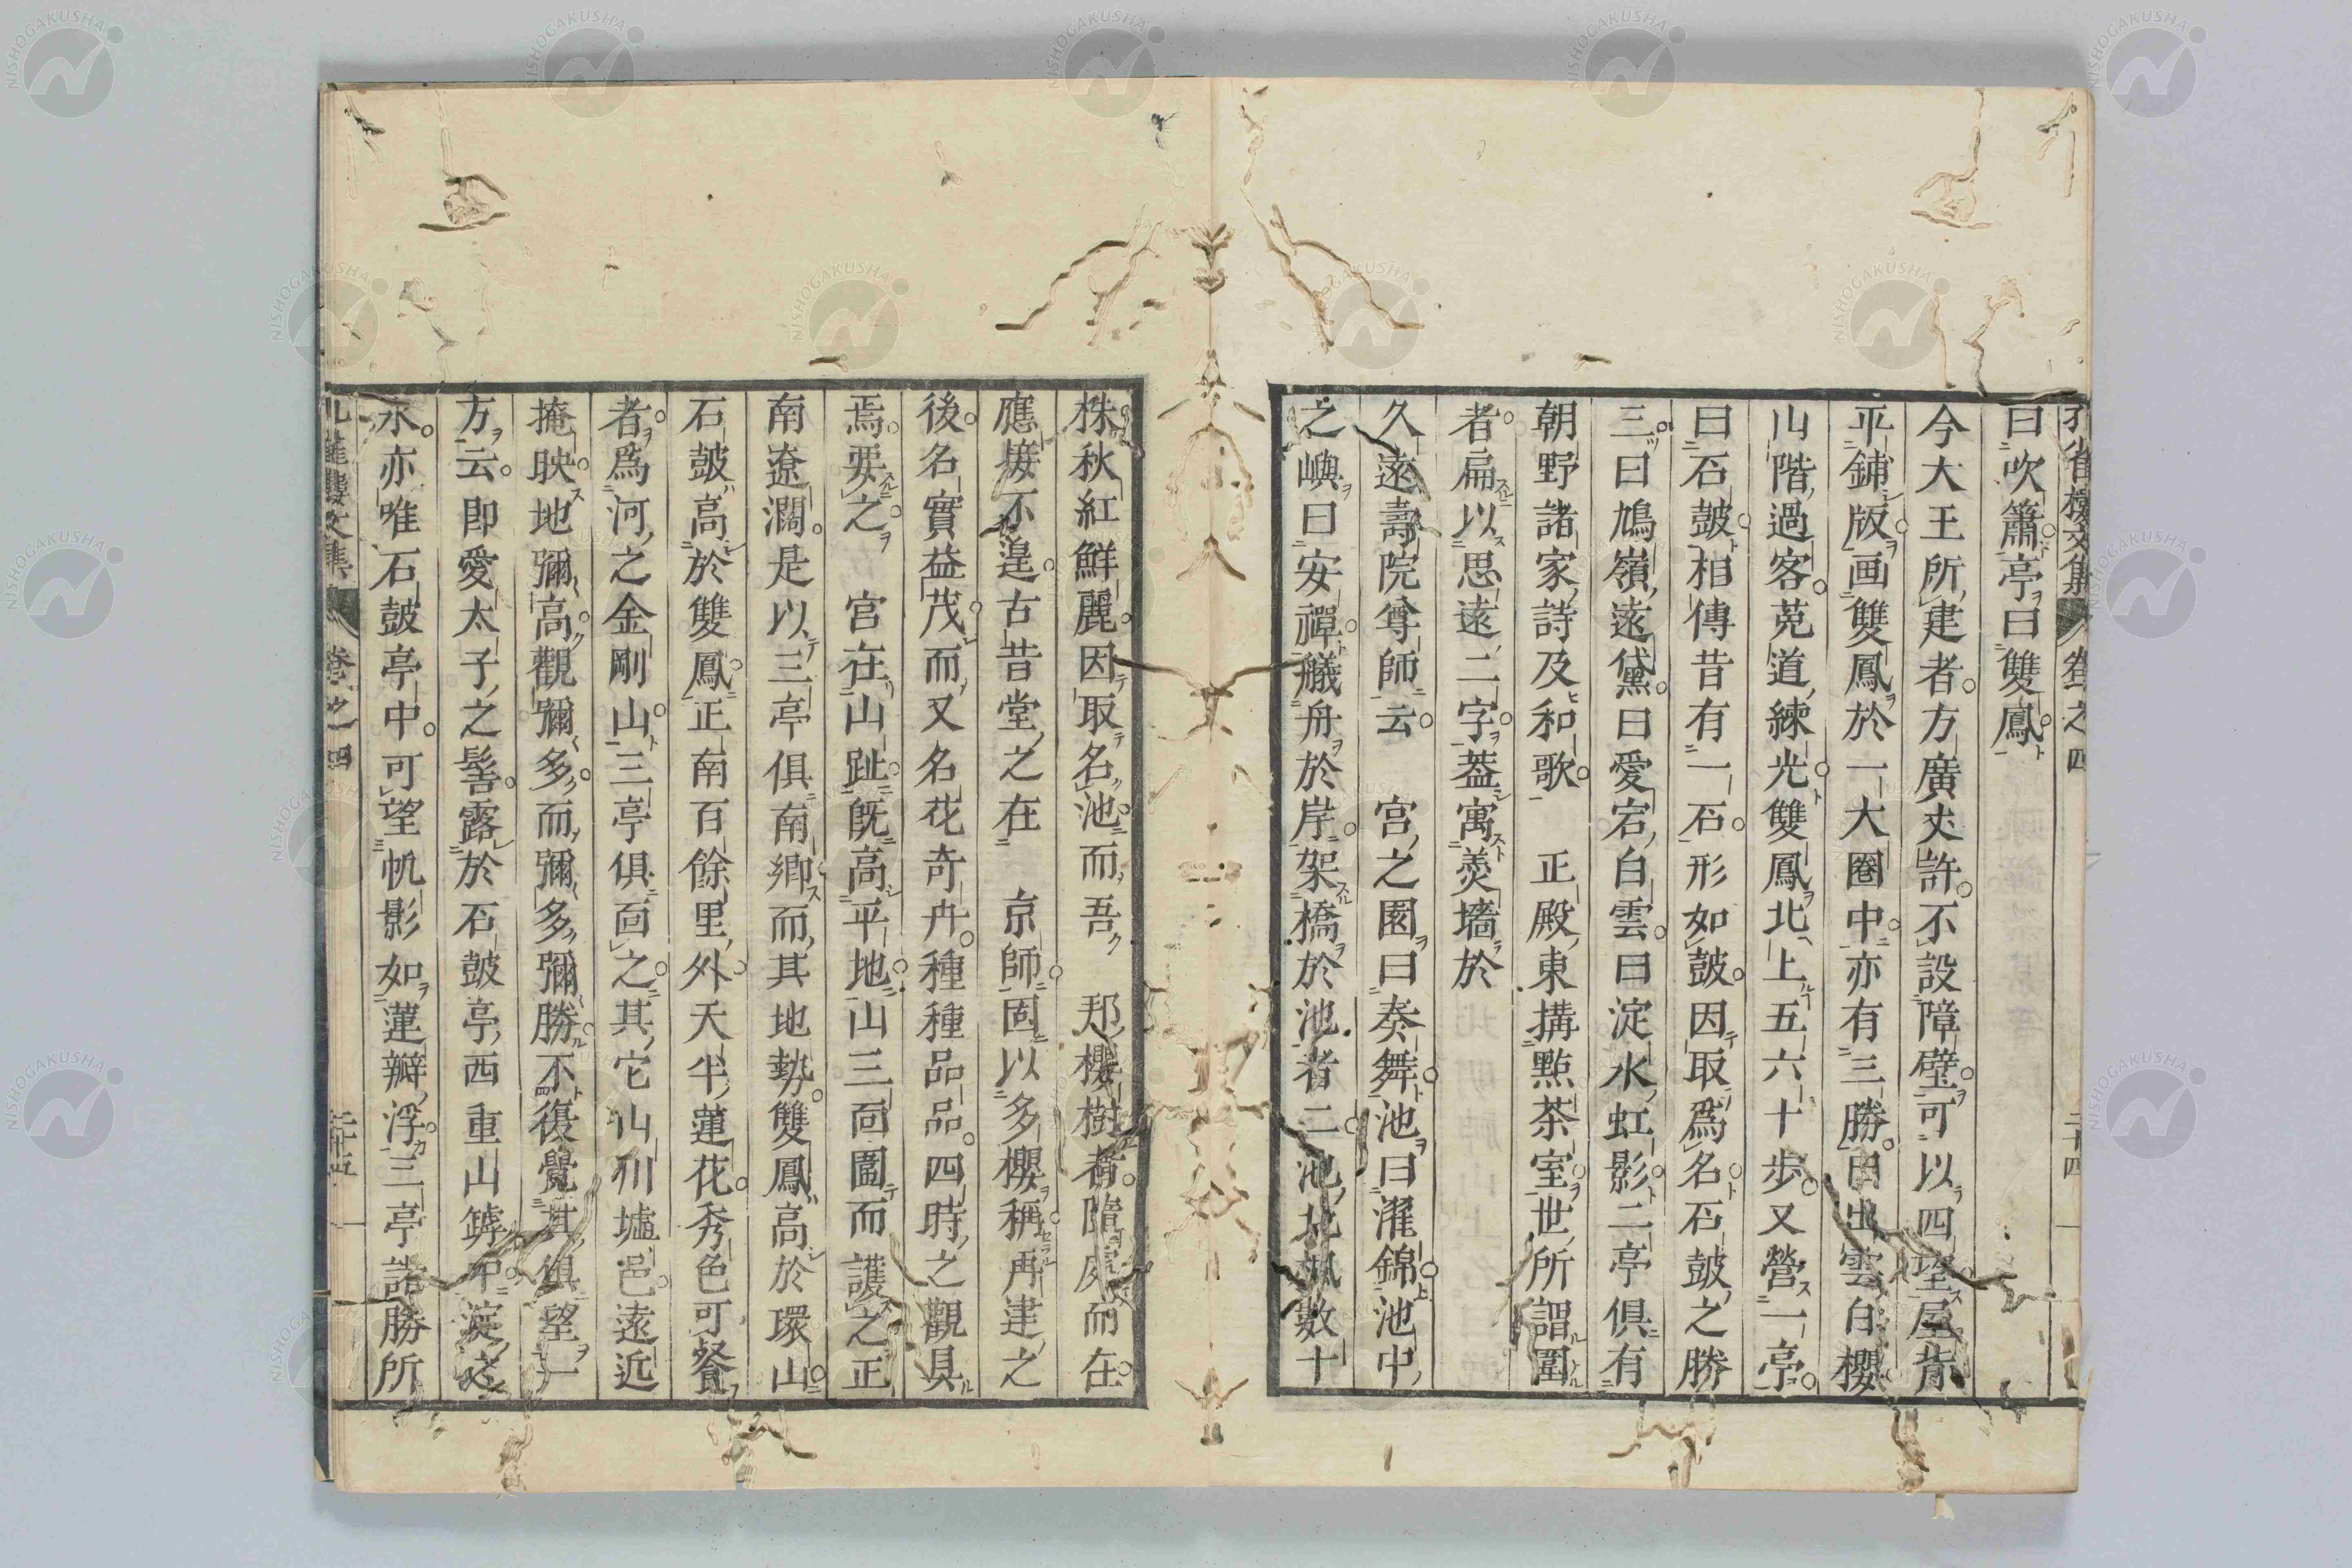 曰吹簫亭曰雙鳳
今大王所建者方廣丈許不設障壁可以四望屋背
平鋪版画雙鳳於一大圈中亦有三勝曰出雲白櫻
山階過客莵道練光雙鳳北上五六十步又營一亭
曰石皷相傳昔有一石形如皷因取爲名石皷之勝
三曰鳩嶺遠黛曰愛宕白雲曰淀水虹影二亭俱有
朝野諸家詩及和歌 正殿東搆點茶室世所謂圍
者扁以思遠二字葢寓羮墻於
久遠壽院尊師云 宮之園曰奏舞池曰濯錦池中
之嶼曰安禪艤舟於岸架橋於池者二池北楓數十
株秋紅鮮麗因取名池而吾 邦櫻樹者隨處而在
應接不遑古昔堂之在 京師固以多櫻稱再建之
後名實益茂而又名花奇卉種種品品四時之觀具
焉要之 宮在山趾旣高平地山三面圍而護之正
南遼濶是以三亭俱南鄉而其地勢雙鳳高於環山
石皷高於雙鳳正南百餘里外天半蓮花秀色可餐
者爲河之金剛山三亭俱面之其它山川墟邑遠近
掩映地彌高觀彌多而彌多彌勝不復覺其俱望一
方云即愛太子之髻露於石皷亭西重山罅中淀之
水亦唯石皷亭中可望帆影如蓮瓣浮三亭諸勝所
卷之四 二十四
卷之四 二十五
NISHOGAKUSHA